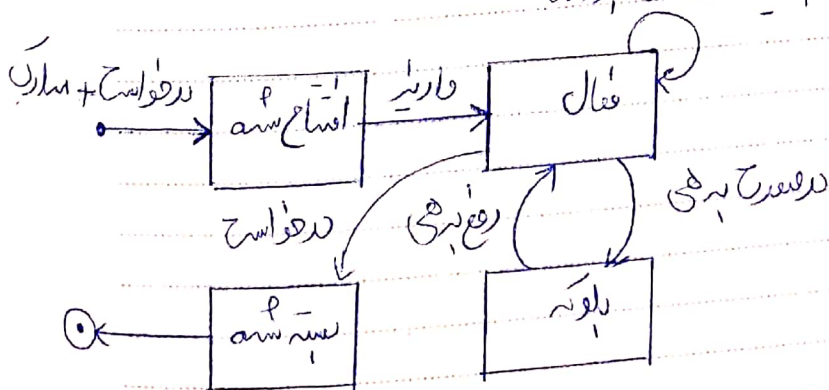 درخواست + مدارک
افتتاح شده
واریز
فعال
درخواست
رفع بدهی
در صورت بدهی
بسته شده
بلوکه